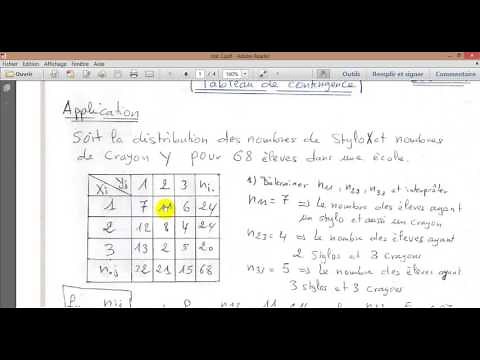 stat 2.pdf - Adobe Reader
Fichier Edition Affichage Fenêtre Aide
Ouvrir 1 / 4 100% Outils Remplir et signer Commentaire
Tableau de contingence
Application
Soit la distribution des nombres de Stylo X et nombres
de Crayon Y pour 68 éleves dans une école.
Xi Yi 1 2 3 ni.
1 7 11 6 24
2 12 8 4 24
3 13 2 5 20
n.j 32 21 15 68
1) Déterminer n11, n23, n33 et interpréter
n11 = 7 => le nombre des éleves ayant
un stylo et aussi un crayon
n23 = 4 => le nombre des éleves ayant
2 Stylos et 3 crayons
n33 = 5 => le nombre des éleves ayant
3 stylos et 3 crayons